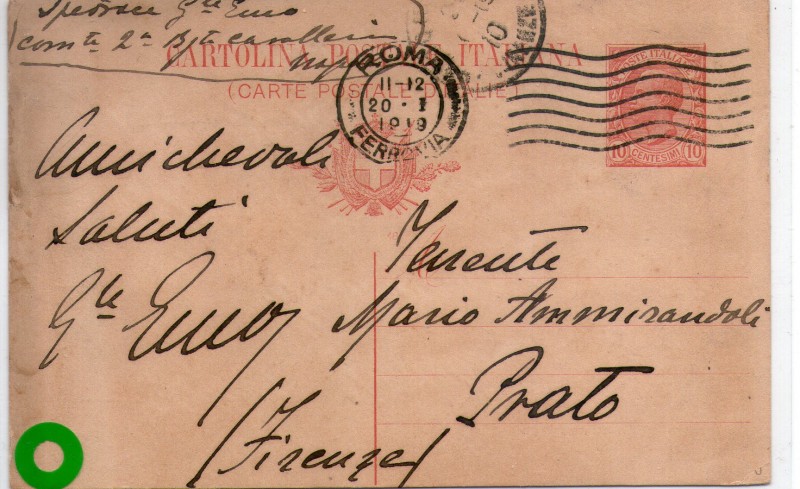 Gte Emo
comte 2a
CARTOLINA POSTALE ITALIANA
(CARTE POSTALE D'ITALIE)
ROMA
11-12
20 · I
1919
FERROVIA
POSTE ITALIANE
10 CENTESIMI 10
Amichevoli
Saluti
Gte Emo
Tenente
Mario Ammirandoli
Prato
(Firenze)